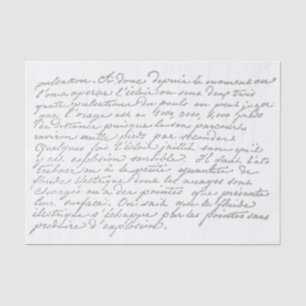 pulsation. Si donc depuis le moment où
l'on a aperçu l'éclair on sent deux trois
quatre pulsations du pouls on peut juger
que l'orage est à 600, 900, 1200 pieds
de distance puisque le son parcourt
environ mille pieds par seconde
Quelques fois l'éclair jaillit sans qu'il
y eut explosion sensible. Il faut l'at-
tribuer à la petite quantité de
fluide électrique dont les nuages sont
chargés ou à des pointes que présente
leur surface. On sait que le fluide
électrique s'échappe par les pointes sans
produire d'explosion.